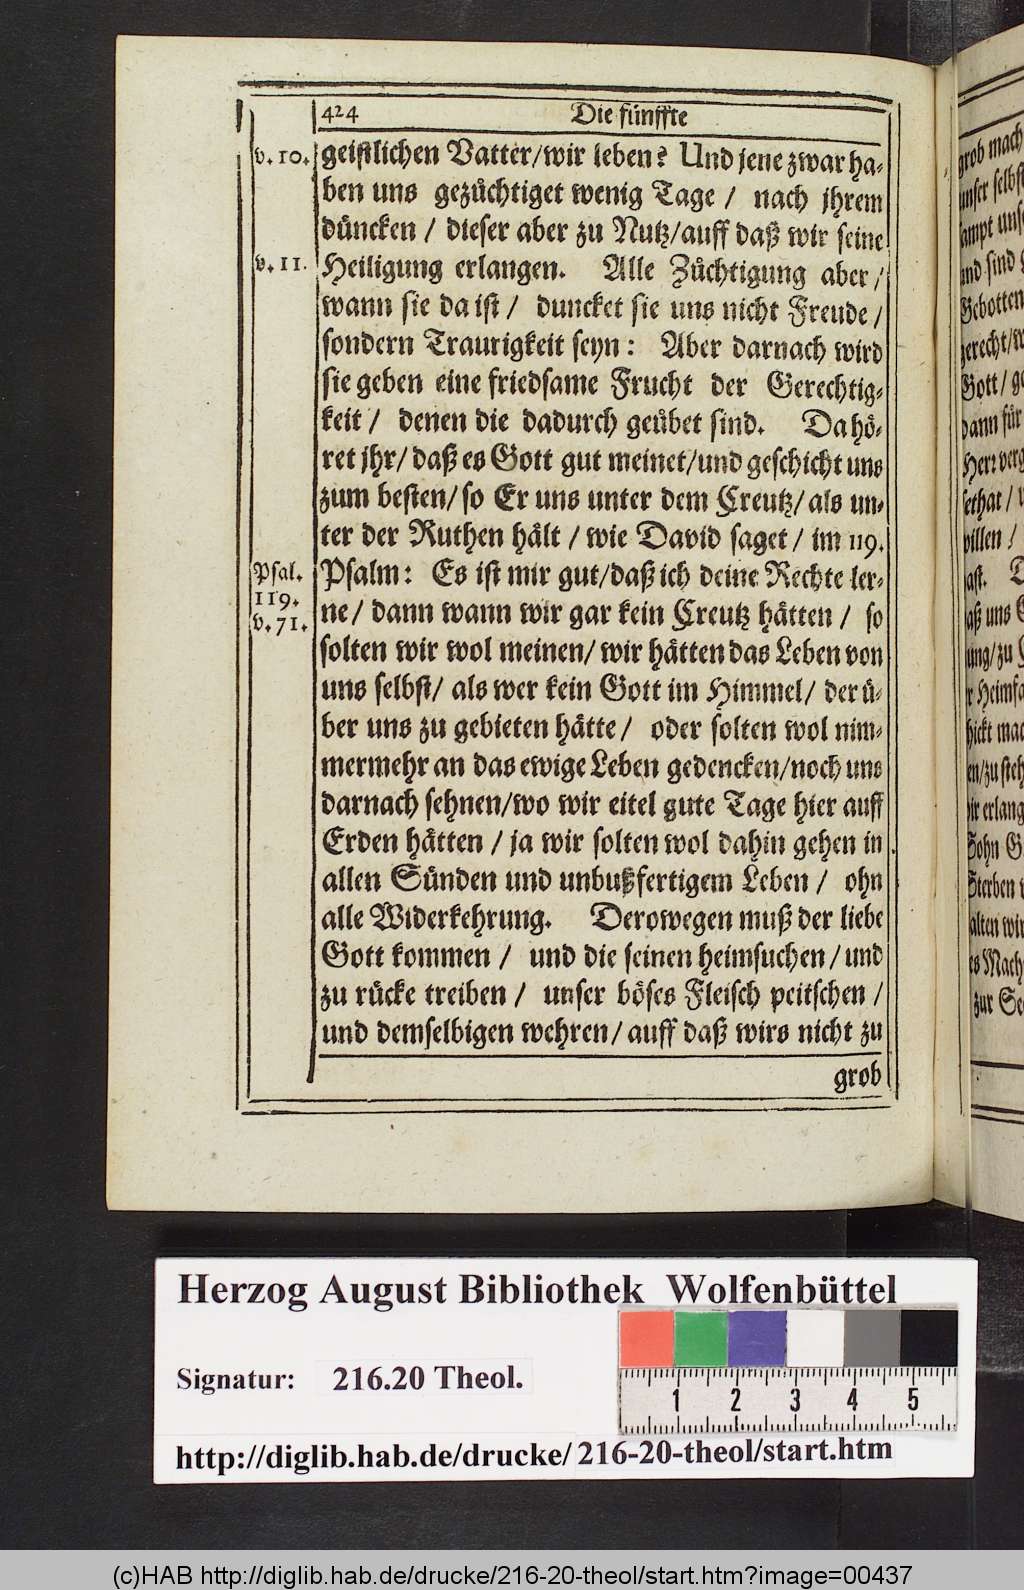 424 Die fünffte
v. 10. geistlichen Vatter/wir leben? Und jene zwar ha-
ben uns gezüchtiget wenig Tage / nach jhrem
düncken / dieser aber zu Nutz/auff daß wir seine
v. 11. Heiligung erlangen. Alle Züchtigung aber /
wann sie da ist / duncket sie uns nicht Freude /
sondern Traurigkeit seyn: Aber darnach wird
sie geben eine friedsame Frucht der Gerechtig-
keit / denen die dadurch geübet sind. Da hö-
ret jhr/ daß es Gott gut meinet/und geschicht uns
zum besten/ so Er uns unter dem Creutz/ als un-
ter der Ruthen hält / wie David saget / im 119.
Psal. 119. v. 71. Psalm: Es ist mir gut/daß ich deine Rechte ler-
ne/ dann wann wir gar kein Creutz hätten / so
solten wir wol meinen/ wir hätten das Leben von
uns selbst/ als wer kein Gott im Himmel/ der ü-
ber uns zu gebieten hätte / oder solten wol nim-
mermehr an das ewige Leben gedencken/noch uns
darnach sehnen/wo wir eitel gute Tage hier auff
Erden hätten / ja wir solten wol dahin gehen in
allen Sünden und unbußfertigem Leben / ohn
alle Widerkehrung. Derowegen muß der liebe
Gott kommen / und die seinen heimsuchen / und
zu rücke treiben / unser böses Fleisch peitschen /
und demselbigen wehren/ auff daß wirs nicht zu
grob
Herzog August Bibliothek Wolfenbüttel
Signatur: 216.20 Theol.
1 2 3 4 5
http://diglib.hab.de/drucke/216-20-theol/start.htm
(c)HAB http://diglib.hab.de/drucke/216-20-theol/start.htm?image=00437